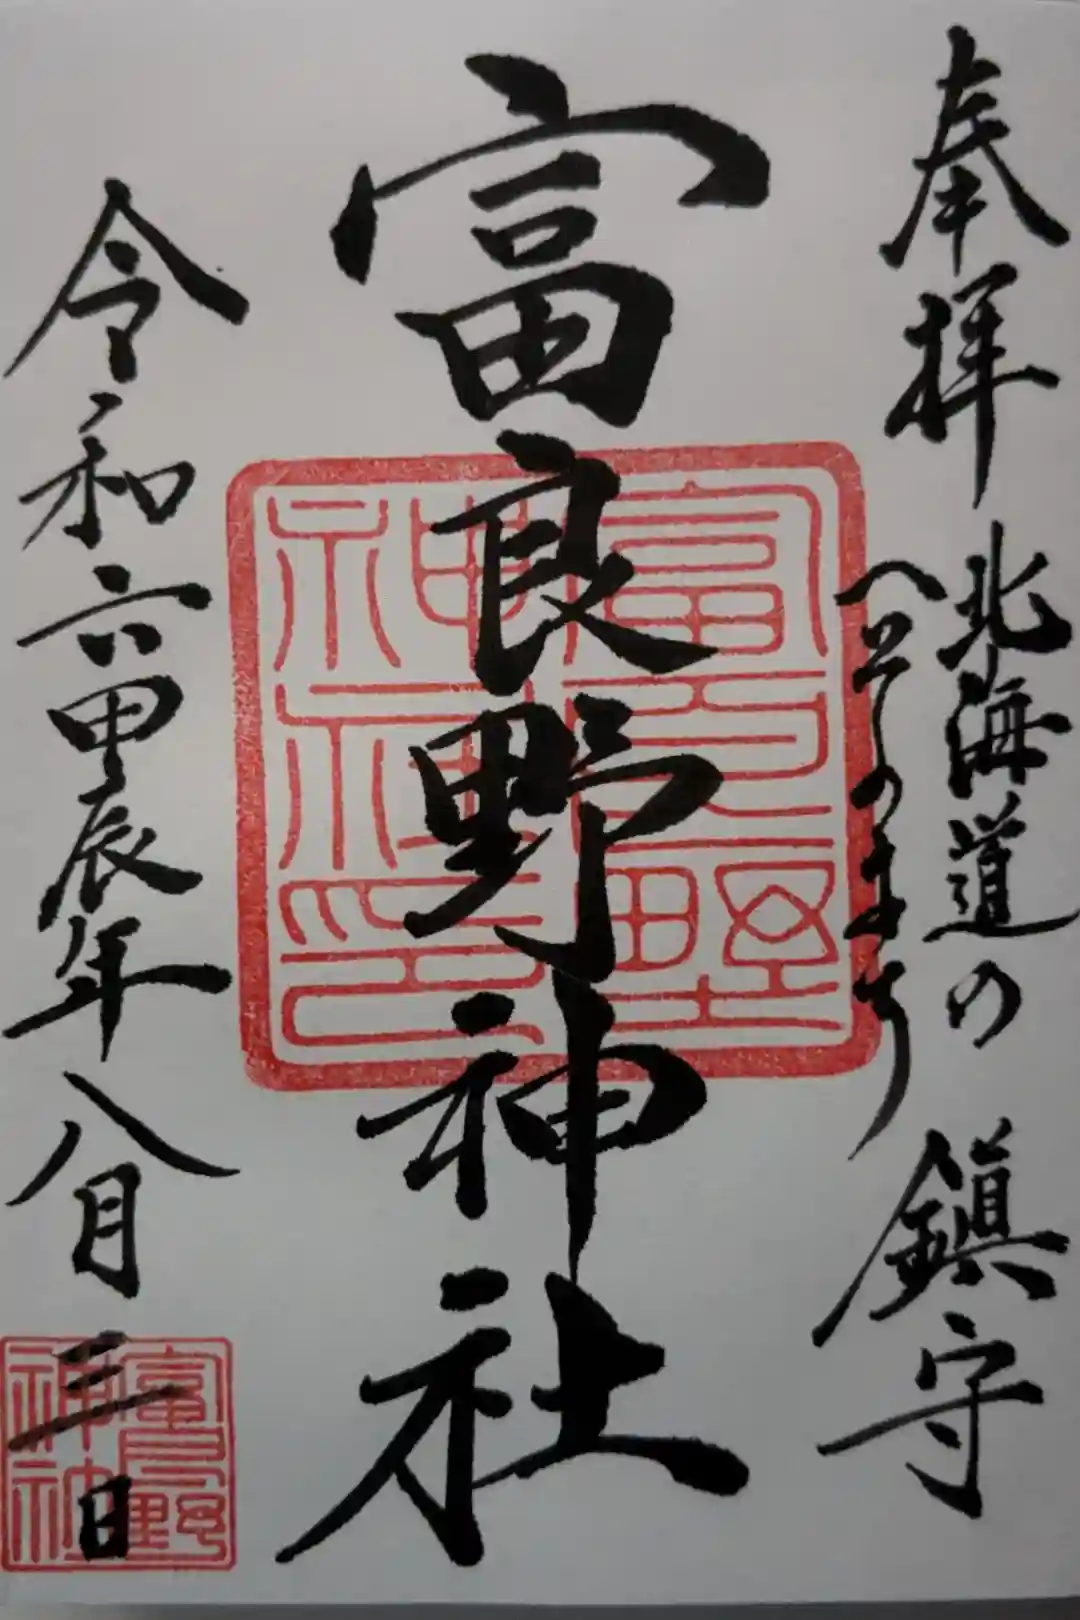 奉拝
北海道の
へそのまち
鎮守
富良野神社
富良野
神社印
令和六甲辰年八月三日
富良野
神社